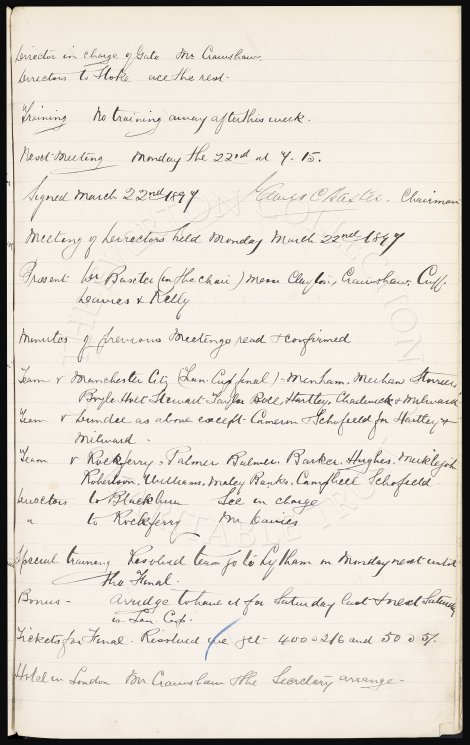 Director in charge of Gate Mr Crawshaw.
Directors to Stoke all the rest.
Training No training away after this week.
Next Meeting Monday the 22nd at 7.15.
Signed March 22nd 1897 James C Baxter. Chairman
Meeting of Directors held Monday March 22nd 1897
Present Dr Baxter (in the chair) Messrs Clayton, Crawshaw, Cuff
Davies & Kelly
Minutes of previous Meetings read & confirmed
Team v Manchester City (Lan. Cup final) - Menham, Meehan Storrier
Boyle Holt Stewart Taylor Bell, Hartley, Chadwick & Milward
Team v Dundee as above except - Cameron & Schofield for Hartley &
Milward.
Team v Rockferry - Palmer Balmer, Barker, Hughes, Meiklejohn
Robertson, Williams, Maley Banks, Campbell Schofield.
Directors to Blackburn Sec in charge
" to Rockferry Mr Davies
Special training Resolved team go to Lytham on Monday next until
the Final.
Bonus - to have £1 for Saturday last & next Saturday
in Lan. Cup.
Tickets for Final - Resolved we get 400 @ 2/6 and 50 @ 5/.
Hotel in London Mr Crawshaw & the Secretary arrange.
THE EVERTON COLLECTION
CHARITABLE TRUST